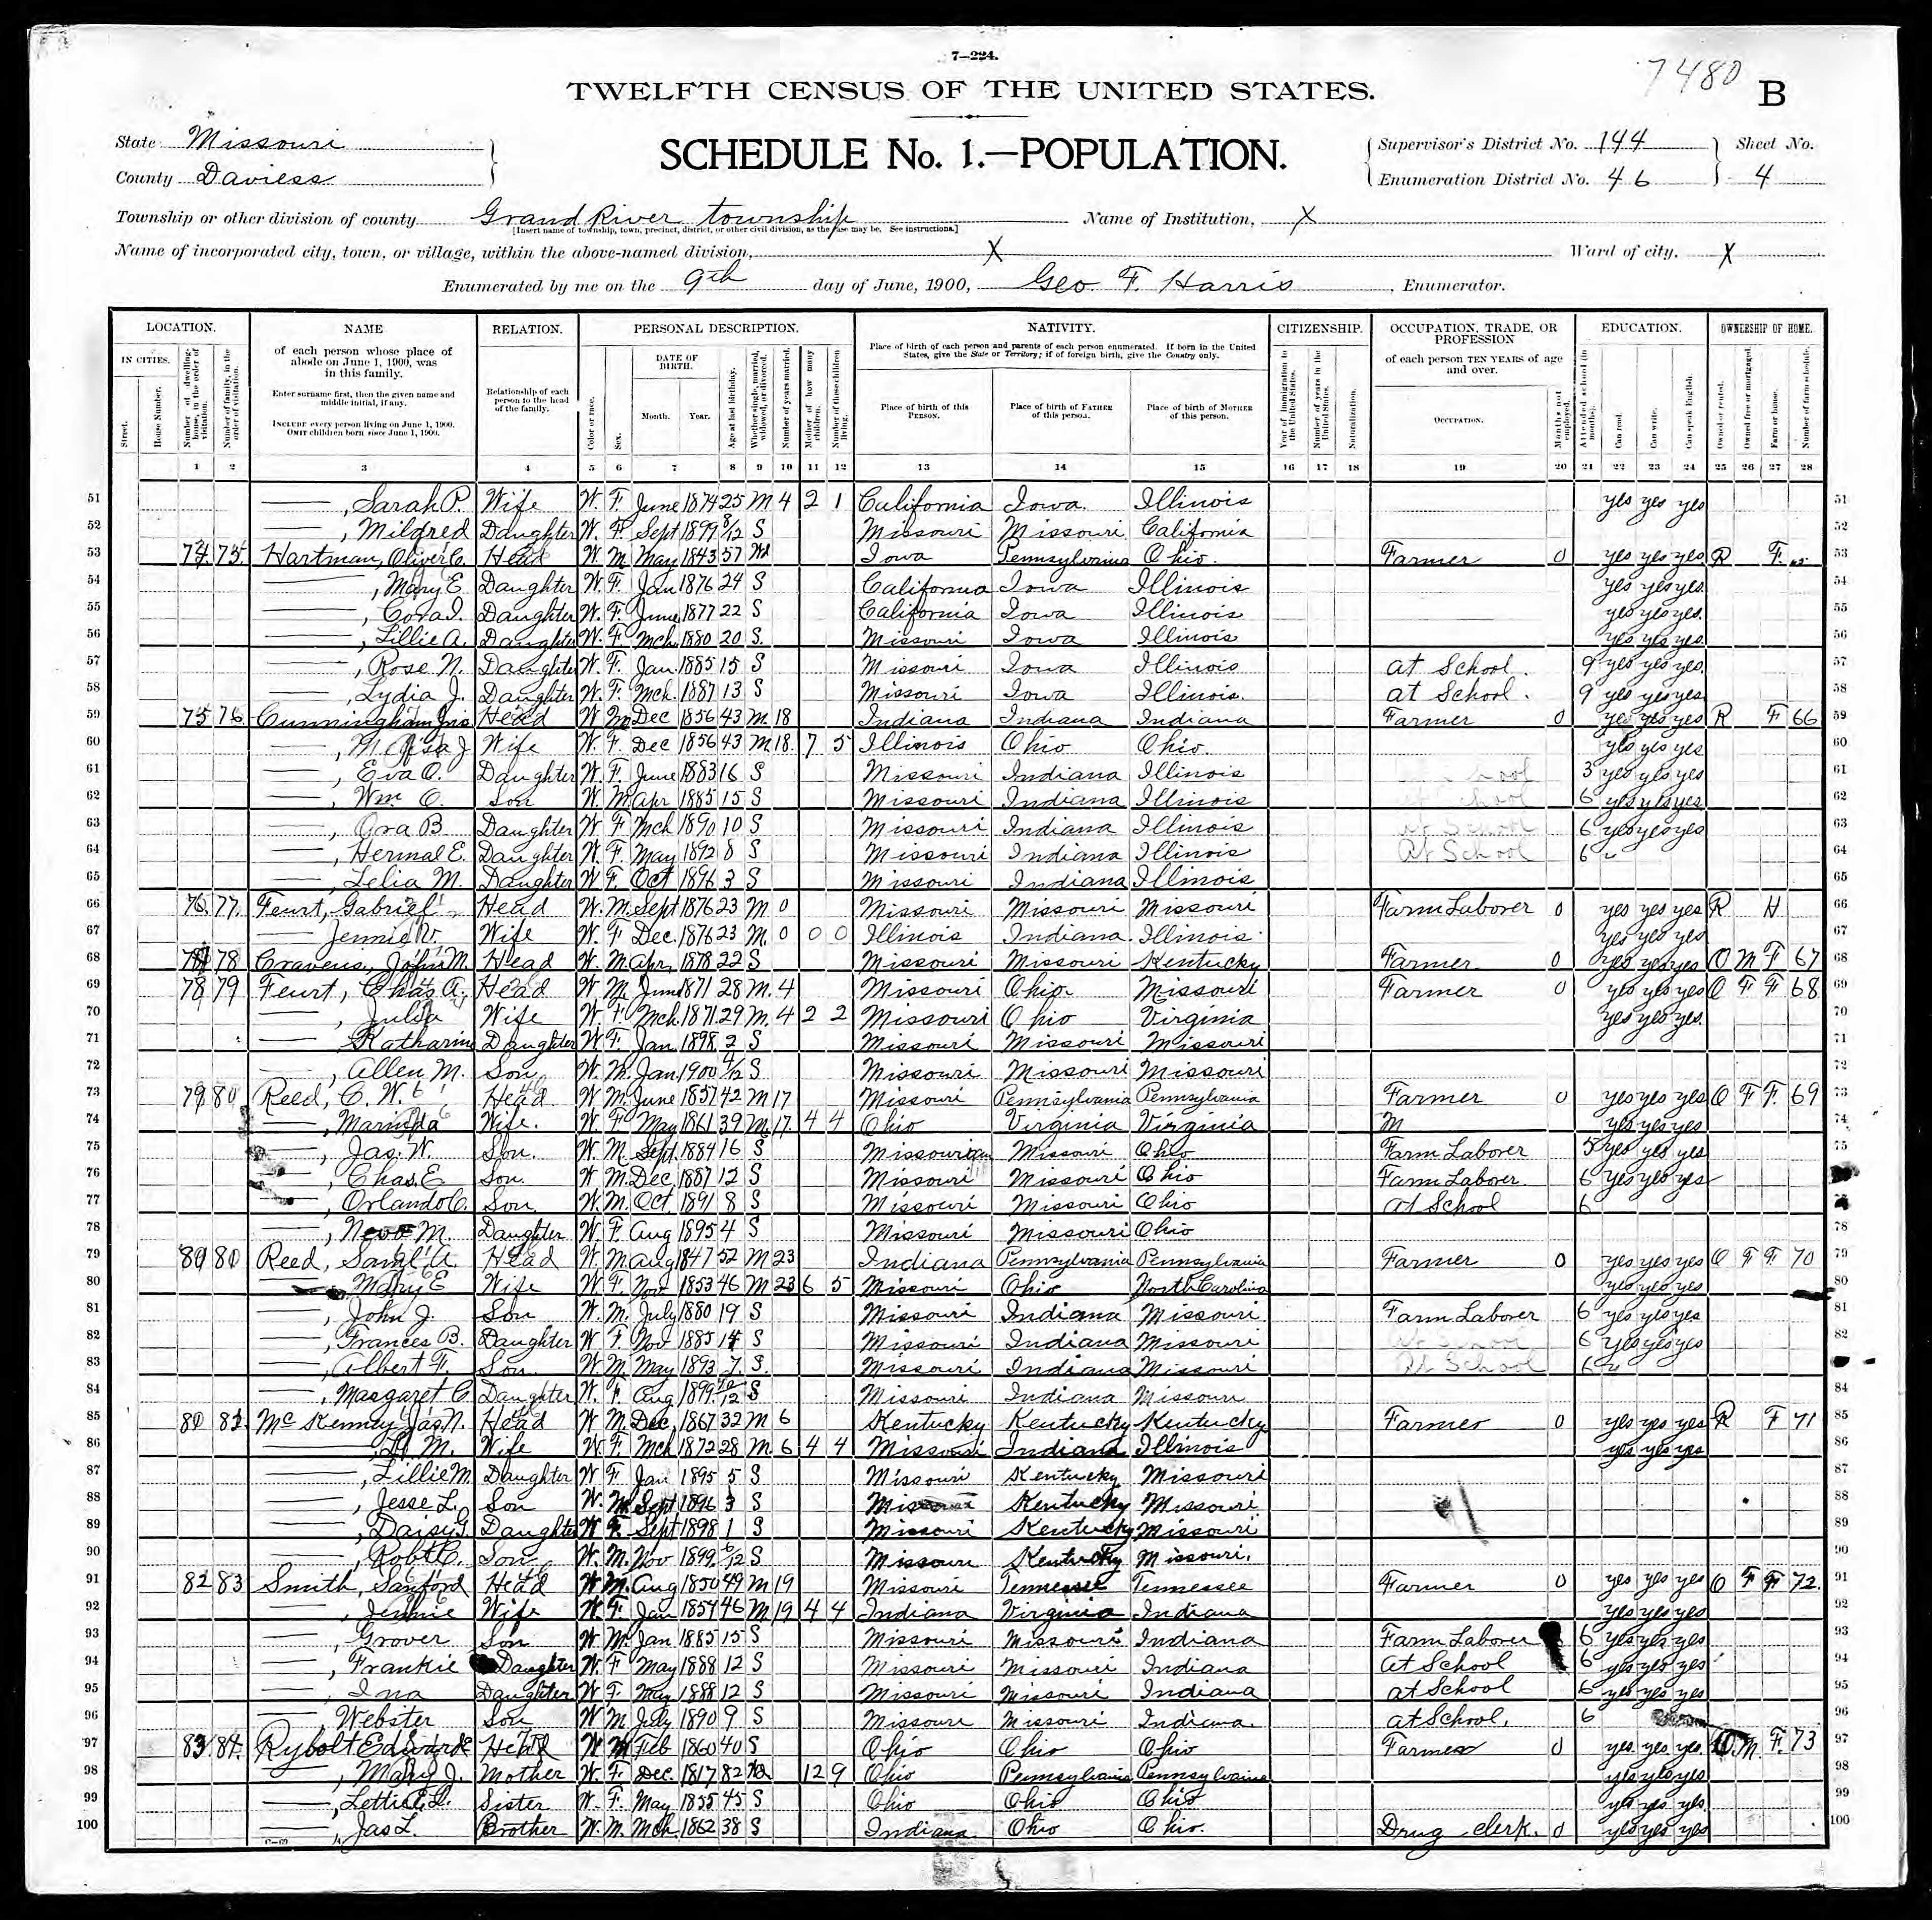 7—224.
7480
TWELFTH CENSUS OF THE UNITED STATES.
B
State Missouri
County Daviess
SCHEDULE No. 1.—POPULATION.
Supervisor's District No. 144 Sheet No.
Enumeration District No. 46 4
Township or other division of county Grand River township Name of Institution, X
[Insert name of township, town, precinct, district, or other civil division, as the case may be. See instructions.]
Name of incorporated city, town, or village, within the above-named division, X Ward of city, X
Enumerated by me on the 9th day of June, 1900, Geo. F. Harris, Enumerator.
LOCATION. NAME RELATION. PERSONAL DESCRIPTION. NATIVITY. CITIZENSHIP. OCCUPATION, TRADE, OR PROFESSION EDUCATION. OWNERSHIP OF HOME.
IN CITIES. Street. House Number. Number of dwelling-house, in the order of visitation. Number of family, in the order of visitation.
of each person whose place of abode on June 1, 1900, was in this family.
Enter surname first, then the given name and middle initial, if any.
INCLUDE every person living on June 1, 1900. OMIT children born since June 1, 1900.
Relationship of each person to the head of the family.
Color or race. Sex. DATE OF BIRTH. Month. Year. Age at last birthday. Whether single, married, widowed, or divorced. Number of years married. Mother of how many children. Number of these children living.
Place of birth of each person and parents of each person enumerated. If born in the United States, give the State or Territory; if of foreign birth, give the Country only.
Place of birth of this PERSON. Place of birth of FATHER of this person. Place of birth of MOTHER of this person.
Year of immigration to the United States. Number of years in the United States. Naturalization.
of each person TEN YEARS of age and over.
OCCUPATION. Months not employed.
Attended school (in months). Can read. Can write. Can speak English.
Owned or rented. Owned free or mortgaged. Farm or house. Number of farm schedule.
1 2 3 4 5 6 7 8 9 10 11 12 13 14 15 16 17 18 19 20 21 22 23 24 25 26 27 28
51 —, Sarah P. Wife W. F. June 1874 25 M 4 2 1 California Iowa. Illinois yes yes yes 51
52 —, Mildred Daughter W. F. Sept 1899 8/12 S Missouri Missouri California 52
53 74. 75. Hartman, Oliver C. Head W. M. May 1843 57 Wd Iowa Pennsylvania Ohio. Farmer 0 yes yes yes R F. 53
54 —, Mary E Daughter W. F. Jan 1876 24 S California Iowa Illinois yes yes yes. 54
55 —, Cora I. Daughter W. F. June 1877 22 S California Iowa Illinois yes yes yes. 55
56 —, Lillie A. Daughter W. F. Mch 1880 20 S. Missouri Iowa Illinois yes yes yes. 56
57 —, Rose N. Daughter W. F. Jan. 1885 15 S Missouri Iowa Illinois at School. 9 yes yes yes. 57
58 —, Lydia J. Daughter W. F. Mch. 1887 13 S Missouri Iowa Illinois. at School. 9 yes yes yes 58
59 75 76. Cunningham, Jas Head W M Dec 1856 43 M. 18 Indiana Indiana Indiana Farmer 0 yes yes yes R F 66 59
60 — J Wife W. F. Dec 1856 43 M. 18. 7 5 Illinois Ohio Ohio. yes yes yes 60
61 —, Eva O. Daughter W. F. June 1883 16 S Missouri Indiana Illinois School 3 yes yes yes 61
62 —, Wm O. Son W. M. Apr 1885 15 S Missouri Indiana Illinois at School 6 yes yes yes 62
63 —, Ora B Daughter W F Mch 1890 10 S Missouri Indiana Illinois At School 6 yes yes yes 63
64 —, Hermal E. Daughter W. F. May 1892 8 S Missouri Indiana Illinois At School 6 64
65 —, Lelia M. Daughter W F. Oct 1896 3 S Missouri Indiana Illinois 65
66 76. 77. Feurt, Gabriel Head W. M. Sept 1876 23 M 0 Missouri Missouri Missouri Farm Laborer 0 yes yes yes R H 66
67 — Jennie V. Wife W. F Dec. 1876 23 M. 0 0 0 Illinois Indiana. Illinois yes yes yes 67
68 78 Cravens, John M. Head W. M. Apr. 1878 22 S Missouri Missouri Kentucky Farmer 0 yes yes yes O M F 67 68
69 78 79 Feurt, Chas A. Head W M. June 1871 28 M. 4 Missouri Ohio. Missouri Farmer 0 yes yes yes O F F 68 69
70 —, Julia Wife W. F. Mch. 1871. 29 M. 4 2 2 Missouri Ohio Virginia yes yes yes. 70
71 — Katharine Daughter W. F. Jan 1898. 2 S Missouri Missouri Missouri 71
72 —, Allen M. Son W. M. Jan 1900 4/12 S Missouri Missouri Missouri 72
73 79 80 Reed, C. W. Head W M. June 1857 42 M 17 Missouri Pennsylvania Pennsylvania Farmer 0 yes yes yes O F F. 69 73
74 —, Marinda Wife. W. F. May 1861 39 M. 17. 4 4 Ohio Virginia Virginia M yes yes yes 74
75 —, Jas. W. Son. W. M. Sept. 1884 16 S Missouri Missouri Ohio Farm Laborer 5 yes yes yes 75
76 —, Chas. E Son. W M. Dec. 1887 12 S Missouri Missouri Ohio Farm Laborer. 6 yes yes yes 76
77 —, Orlando C. Son W. M. Oct. 1891 8 S Missouri Missouri Ohio at School 6
78 — M. Daughter W. F. Aug 1895 4 S Missouri Missouri Ohio 78
79 80 80 Reed, Saml A. Head W. M. Aug 1847 52 M 23 Indiana Pennsylvania Pennsylvania Farmer 0 yes yes yes O F F. 70 79
80 — Mary E Wife W. F. Nov 1853 46 M 23 6 5 Missouri Ohio North Carolina yes yes yes 80
81 —, John J. Son W. M. July 1880 19 S Missouri Indiana Missouri Farm Laborer 6 yes yes yes 81
82 —, Frances B. Daughter W F. Nov 1885 14 S Missouri Indiana Missouri At School 6 yes yes yes 82
83 —, Albert F. Son W. M. May 1893 7. S. Missouri Indiana Missouri At School 6 83
84 —, Margaret C. Daughter W. F. Aug 1899 10/12 S Missouri Indiana Missouri 84
85 80 82. McKenney, Jas. N. Head W M. Dec. 1867 32 M 6 Kentucky Kentucky Kentucky Farmer 0 yes yes yes R F 71 85
86 — M. Wife W. F. Mch 1872 28 M. 6 4 4 Missouri Indiana Illinois yes yes yes 86
87 —, Lillie M. Daughter W F Jan 1895 5 S Missouri Kentucky Missouri 87
88 —, Jesse L. Son W. M. Sept 1896 3 S Missouri Kentucky Missouri 88
89 —, Daisy G. Daughter W F. Sept 1898 1 S Missouri Kentucky Missouri 89
90 —, Robt C. Son W. M. Nov 1899. 6/12 S Missouri Kentucky Missouri. 90
91 82 83 Smith, Sanford Head W M. Aug 1850 49 M 19 Missouri Tennessee Tennessee Farmer 0 yes yes yes O F F 72. 91
92 —, Jennie Wife W. F. Jan 1854 46 M. 19 4 4 Indiana Virginia Indiana yes yes yes 92
93 —, Grover Son W M. Jan 1885 15 S Missouri Missouri Indiana Farm Laborer 6 yes yes yes 93
94 —, Frankie Daughter W. F May 1888 12 S Missouri Missouri Indiana at School 6 yes yes yes 94
95 —, Ina Daughter W F. May 1888 12 S Missouri Missouri Indiana at School 6 yes yes yes 95
96 —, Webster Son W M July 1890 9 S Missouri Missouri Indiana. at School. 6 96
97 83 84. Rybolt Edward Head W M Feb 1860 40 S Ohio Ohio Ohio Farmer 0 yes. yes. yes. O. M. F. 73 97
98 —, Mary J. Mother W. F Dec. 1817 82 Wd 12 9 Ohio Pennsylvania Pennsylvania yes yes yes 98
99 —, Lettie Sister W. F. May 1855 45 S Ohio Ohio Ohio yes yes yes 99
100 —, Jas L. Brother W. M. Mch. 1862 38 S Indiana Ohio Ohio. Drug clerk. 0 yes yes yes 100